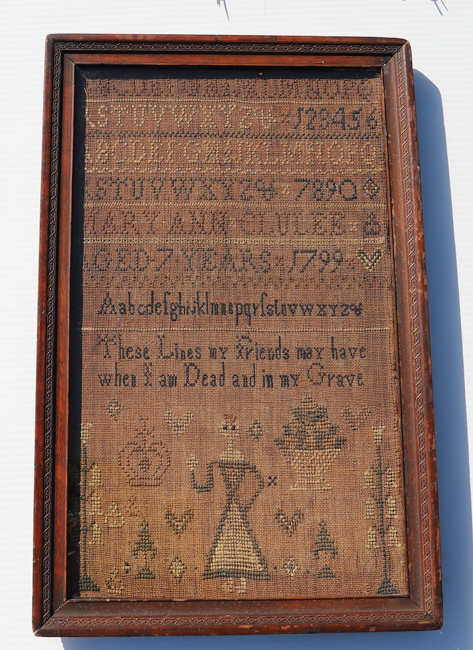 ABCDEFGHIJKLMNOPQ
RSTUVWXYZ& 123456
ABCDEFGHIJKLMNOPQ
RSTUVWXYZ& 7890
MARY ANN CLULEE
AGED 7 YEARS 1799
Aabcdefghijklmnopqrſstuvwxyz&
These Lines my Friends may have
when I am Dead and in my Grave